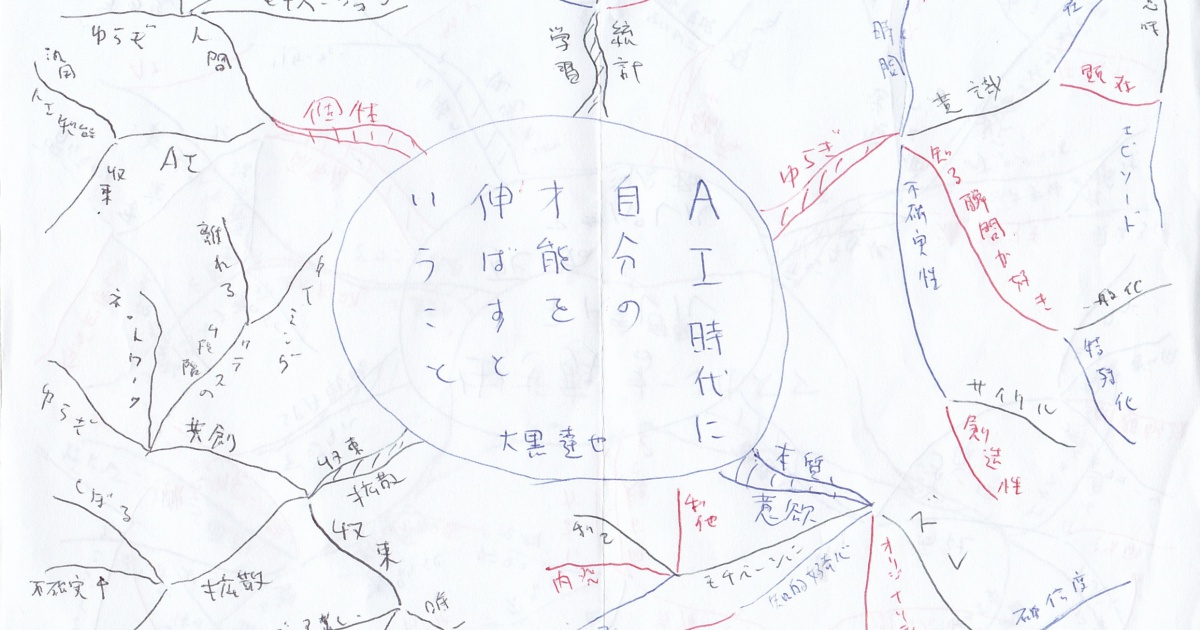 AI時代に
自分の
才能を
伸ばすと
いうこと
大黒達也
学習
統計
時間
意識
顕在
エピソード
ゆらぎ
知る瞬間が好き
不確実性
一般化
特殊化
サイクル
創造性
本質
意欲
利他
内発
モチベーション
知的好奇心
オリジナリティ
個性
人間
ゆらぎ
汎用
人工知能
AI
収束
離れる
タイミング
ネットワーク
ゆらぎ
共創
収束
拡散
しぼる
不確実
拡散
収束